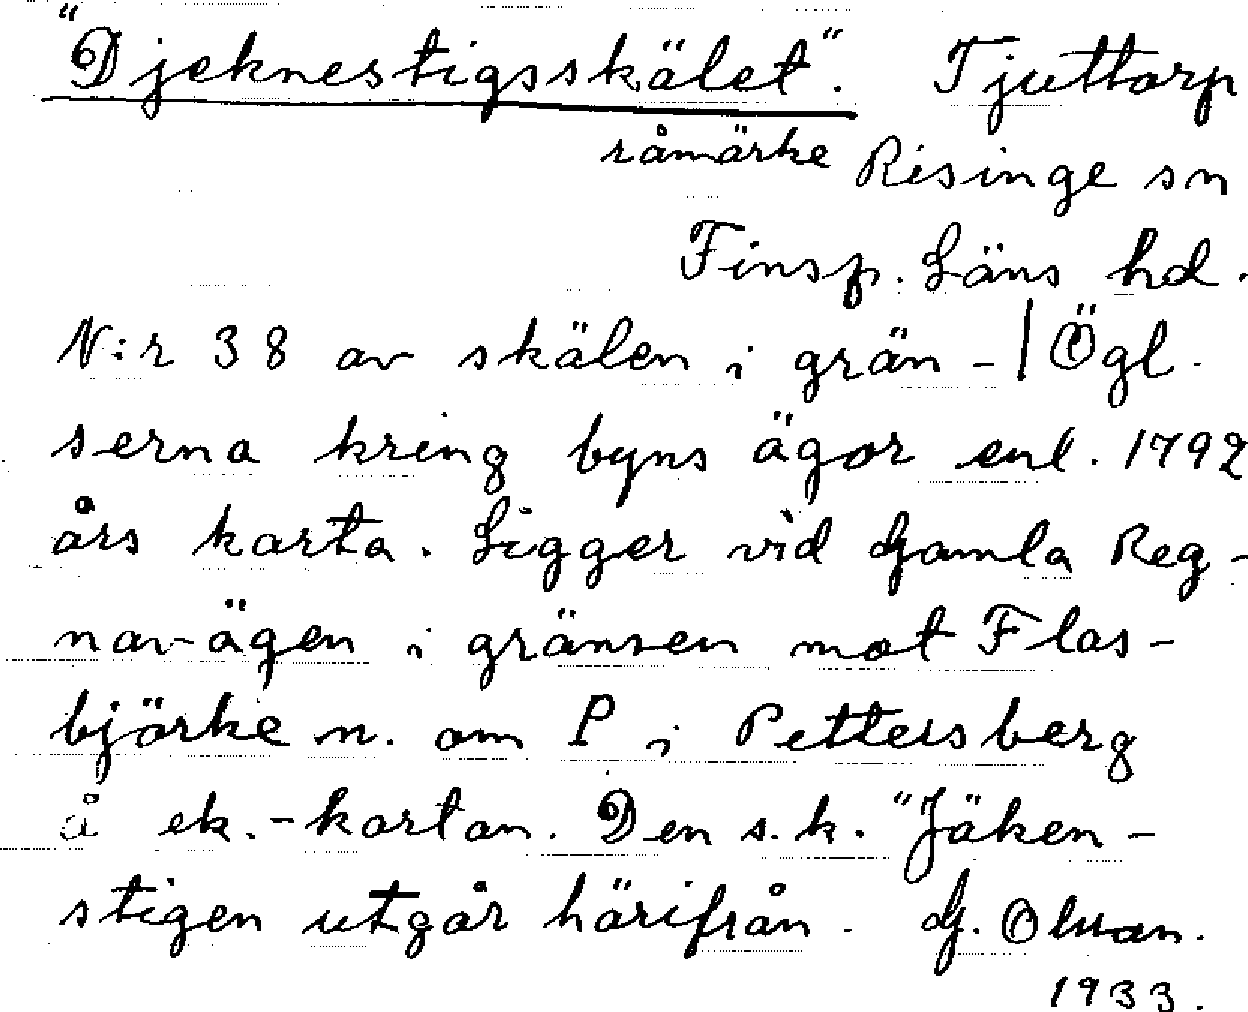 "Djeknestigsskälet". Tjuttorp
råmärke Risinge sn
Finsp. Läns hd.
N:r 38 av skälen i grän-| Ögl.
serna kring byns ägor enl. 1792
års karta. Ligger vid Gamla Reg-
navägen i gränsen mot Flas-
björke n. om P i Pettersberg
å ek.-kartan. Den s.k. "Jäken-
stigen utgår härifrån. G. Olsson.
1933.